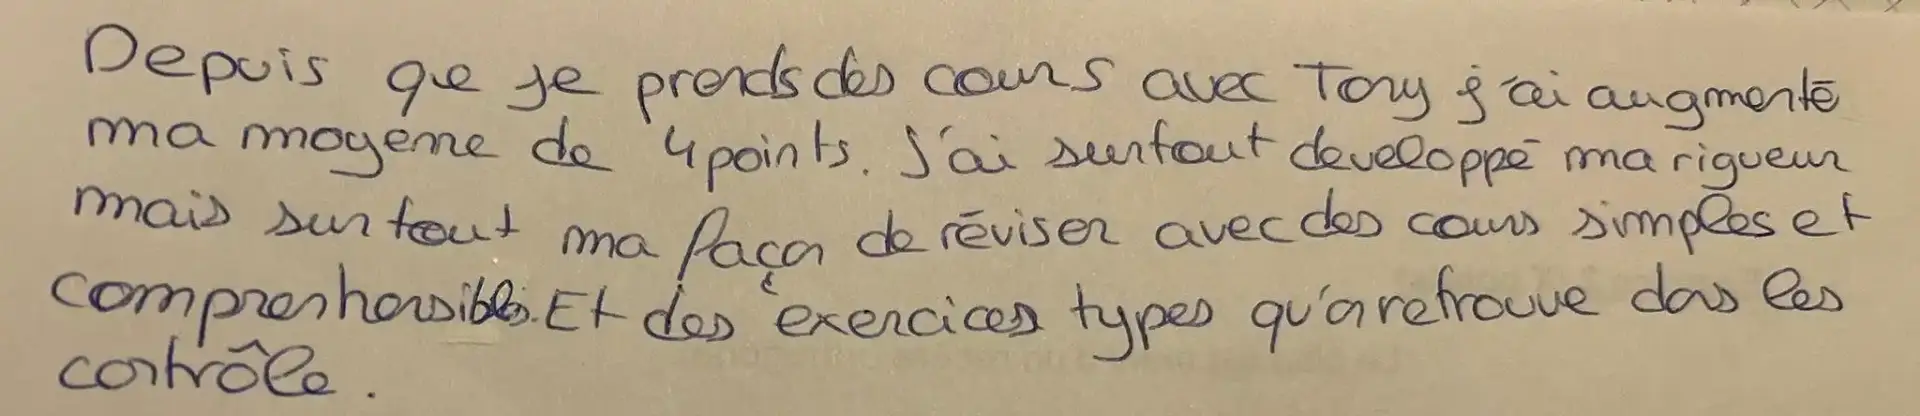 Depuis que je prends des cours avec Tony j'ai augmenté
ma moyenne de 4 points. J'ai surtout developpé ma rigueur
mais surtout ma façon de réviser avec des cours simples et
comprenhensibles. Et des exercices types qu'on retrouve dans les
contrôle.